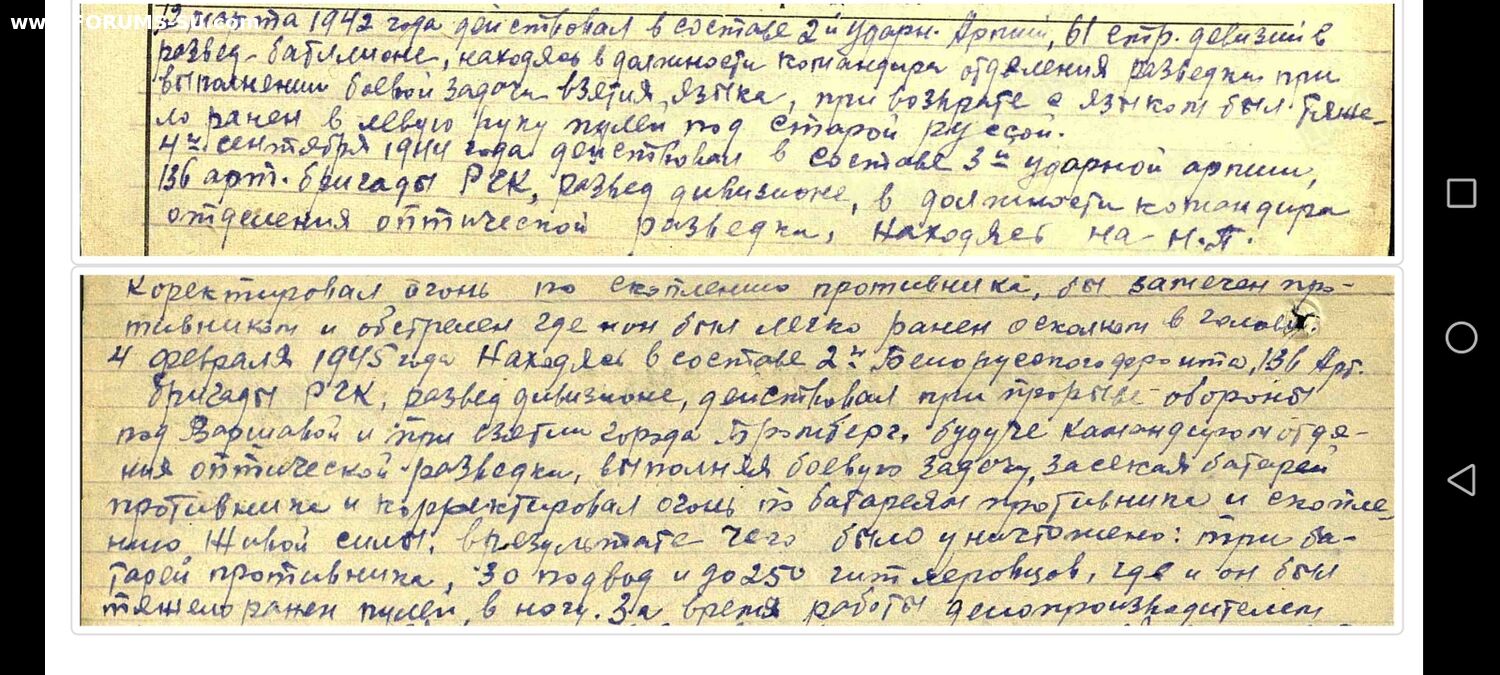 www.FORUMS-SU.com
12 марта 1942 года действовал в составе 2й Ударн. Армии, 61 стр. дивизии в
развед-батллионе, находясь в должности командира отделения разведки при
выполнении боевой задачи взятия языка, при возврате с языком был тяже-
ло ранен в левую руку пулей под старой руссой.
4го сентября 1944 года действовал в составе 3й ударной армии,
136 арт. бригады РГК, развед дивизионе, в должности командира
отделения оптической разведки, находясь на Н.П.
коректировал огонь по скоплению противника, бы замечен про-
тивником и обстрелен где и он был легко ранен осколком в голову.
4 февраля 1945 года Находясь в составе 2й Белорусского фронта, 136 Арт.
бригады РГК, развед дивизионе, действовал при прорыве обороны
под Варшавой и при взятии города Бромберг. будуче командиром отде-
ния оптической разведки, выполняя боевую задачу, засекая батареи
противника и корректировал огонь по батареям противника и скопле-
нию Живой силы. врезультате чего было уничтожено: три ба-
тареи противника, 30 подвод и до 250 гитлеровцов, где и он был
тяжело ранен пулей, в ногу. За время работы делопроизводителем